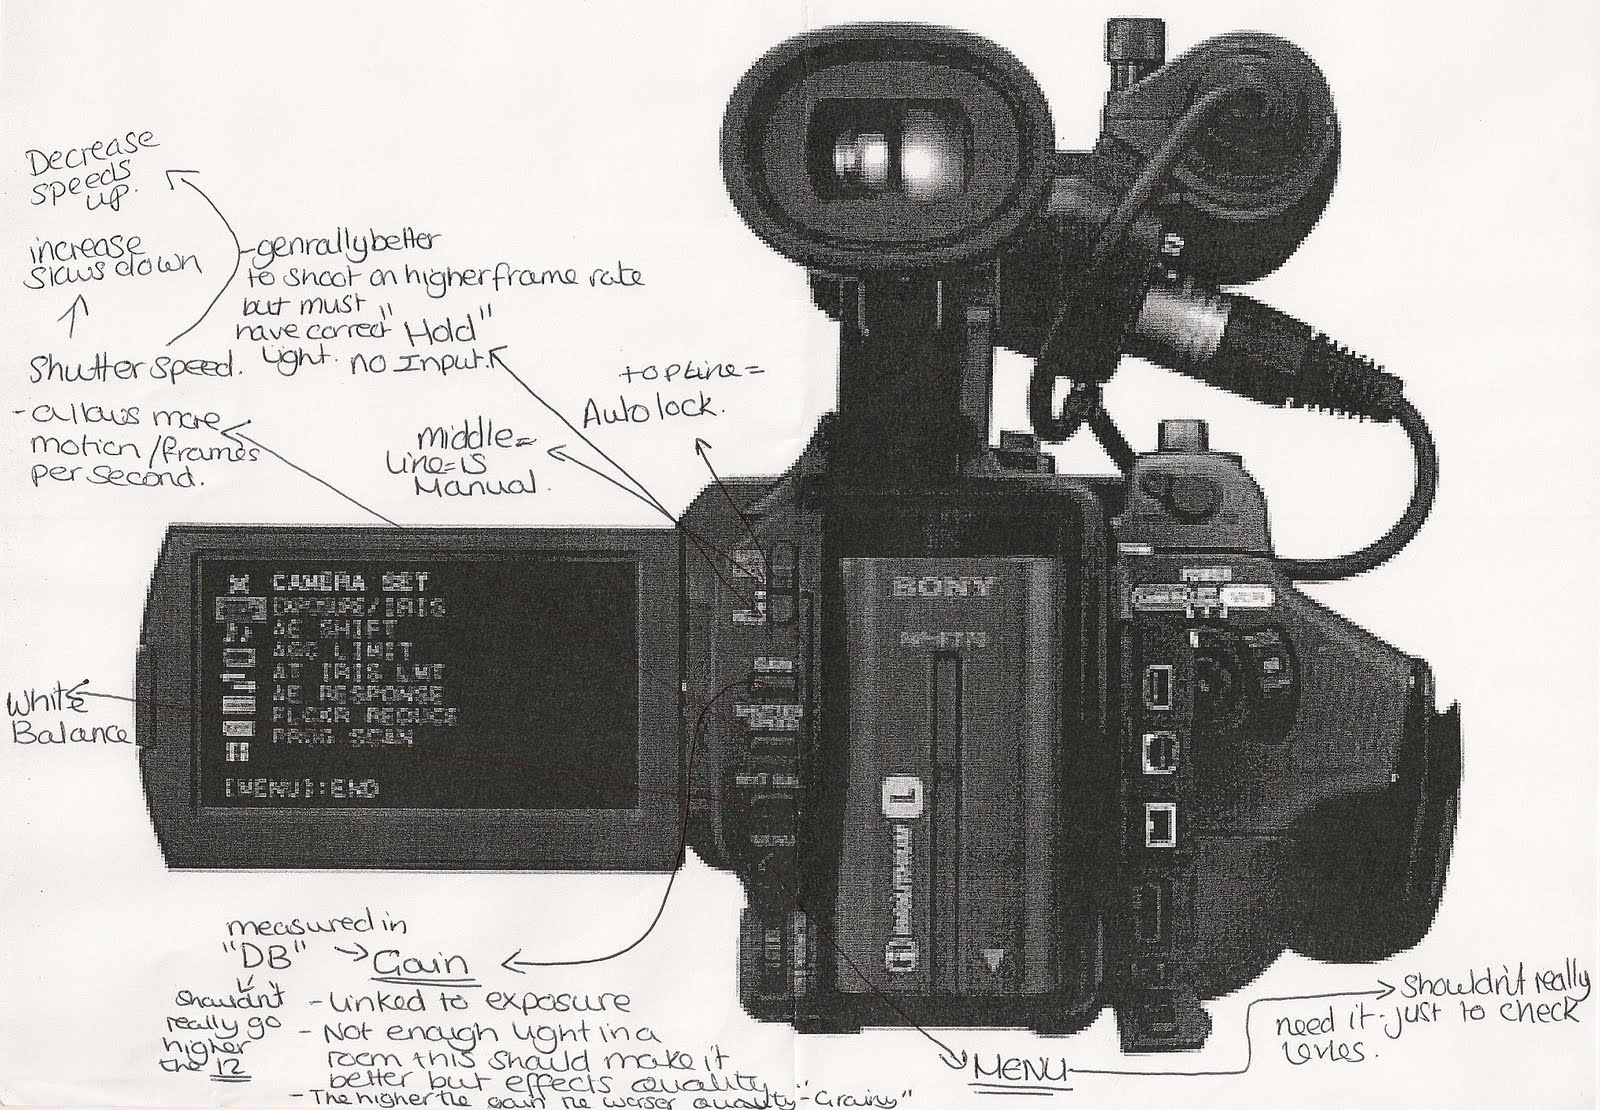 Decrease
speeds
up.
increase
slows down
Shutter speed.
- allows more
motion/frames
per second.
- genrally better
to shoot on higher frame rate
but must
have correct
light.
"Hold"
no Input.
top Line =
Auto lock.
middle =
Line = is
Manual.
CAMERA SET
EXPOSURE/IRIS
AE SHIFT
AGC LIMIT
AT IRIS LMT
AE RESPONSE
FLCKR REDUCE
PROG SCAN
[MENU]:END
SONY
L
White
Balance
measured in
"DB"
Shouldn't
really go
higher
the 12
Gain
- Linked to exposure
- Not enough light in a
room this should make it
better but effects quality
- The higher the gain the worser quality - "Grainy"
MENU
Shouldn't really
need it - just to check
levles.